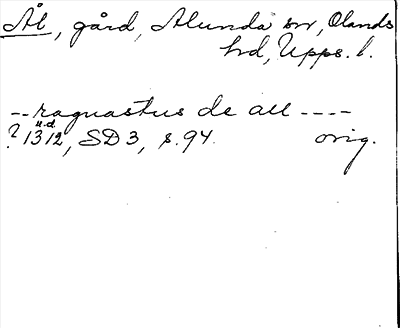 Ål, gård, Alunda sn, Olands
hd, Upps. l.
-- ragnastus de all ----
? u.d. 1312, SD 3, s. 94. orig.